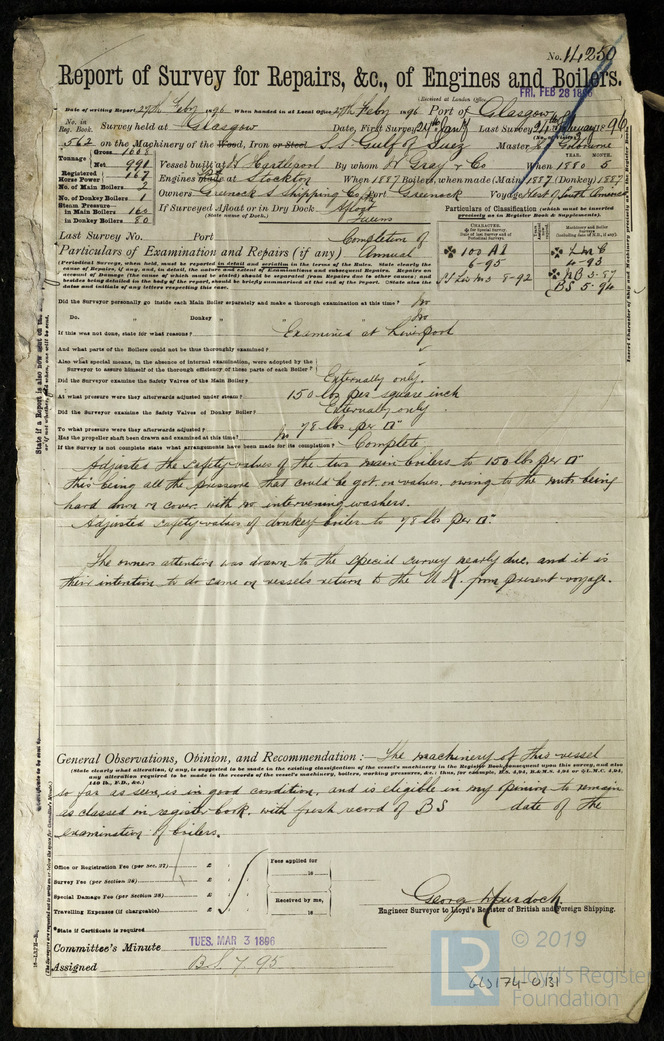 No. 14250
Report of Survey for Repairs, &c., of Engines and Boilers.
(Received at London Office) FRI. FEB 28 1896
Date of writing Report 27th Feby 1896 When handed in at Local Office 27th Feby 1896 Port of Glasgow
No. in Reg. Book. Survey held at Glasgow Date, First Survey Last Survey 1896
562 on the Machinery of the Wood, Iron or Steel S.S. Gulf of Suez Master
Tonnage Gross
Net 991 Vessel built at W. Hartlepool By whom W Gray & Co When 1880 5
Registered Horse Power 167 Engines Made at Stockton When 1887 Boilers, when made (Main) 1887 (Donkey) 1887
No. of Main Boilers 2
No. of Donkey Boilers 1 Owners Greenock S Shipping Co. Port Greenock Voyage West of South America
Steam Pressure in Main Boilers 160 If Surveyed Afloat or in Dry Dock Afloat
in Donkey Boilers 80 (State name of Dock.)
Particulars of Classification (which must be inserted precisely as in Register Book & Supplements).
Last Survey No. Port Completion of
Particulars of Examination and Repairs (if any) Annual
100 A1
6-95
3-8-92
LMC
4-93
NB 3-87
BS 5-94
(Periodical Surveys, when held, must be reported in detail and seriatim in the terms of the Rules. State clearly the cause of Repairs, if any, and, in detail, the nature and extent of Examinations and subsequent Repairs. Repairs on account of Damage (the cause of which must be stated) should be separated from Repairs due to other causes; and besides being detailed in the body of the report, should be briefly summarised at the end of the report. State also the dates and initials of any letters respecting this case.)
Did the Surveyor personally go inside each Main Boiler separately and make a thorough examination at this time? No
Do. " Donkey " Do. No
If this was not done, state for what reasons? Examined at Liverpool
And what parts of the Boilers could not be thus thoroughly examined?
Also what special means, in the absence of internal examination, were adopted by the Surveyor to assure himself of the thorough efficiency of those parts of each Boiler?
Did the Surveyor examine the Safety Valves of the Main Boiler? Externally only.
At what pressure were they afterwards adjusted under steam? 150 lbs per square inch
Did the Surveyor examine the Safety Valves of Donkey Boiler? Externally only
To what pressure were they afterwards adjusted? 78 lbs per □"
Has the propeller shaft been drawn and examined at this time? No
If the Survey is not complete state what arrangements have been made for its completion? Complete
Adjusted the safety valves of the two main boilers to 150 lbs per □"
this being all the pressure that could be got on valves, owing to the nuts being
hard down on cover with no intervening washers.
Adjusted safety valves of donkey boiler to 78 lbs per □".
The owners attention was drawn to the special survey nearly due, and it is
their intention to do same on vessels return to the U.K. from present voyage.
General Observations, Opinion, and Recommendation:— The machinery of this vessel
(State clearly what alteration, if any, is suggested to be made in the existing classification of the vessel's machinery in the Register Book consequent upon this survey, and also any alteration required to be made in the records of the vessel's machinery, boilers, working pressures, &c.: thus, for example, B.S. 4,94, B.&M.S. 4,94 or L.M.C. 4,94, 140 lb., F.D., &c.)
so far as seen, is in good condition, and is eligible in my opinion to remain
as classed in register book, with fresh record of BS date of the
examination of boilers.
Office or Registration Fee (per Sec. 27) £ : :
Survey Fee (per Section 28) £ : :
Special Damage Fee (per Section 28) £ : :
Travelling Expenses (if chargeable) £ : :
Fees applied for
18
Received by me,
18
George Murdoch
Engineer Surveyor to Lloyd's Register of British and Foreign Shipping.
*State if Certificate is required
Committee's Minute TUES. MAR 3 1896
Assigned B.S. 7. 95
LR
© 2019
Lloyd's Register
Foundation
GLS174-0131